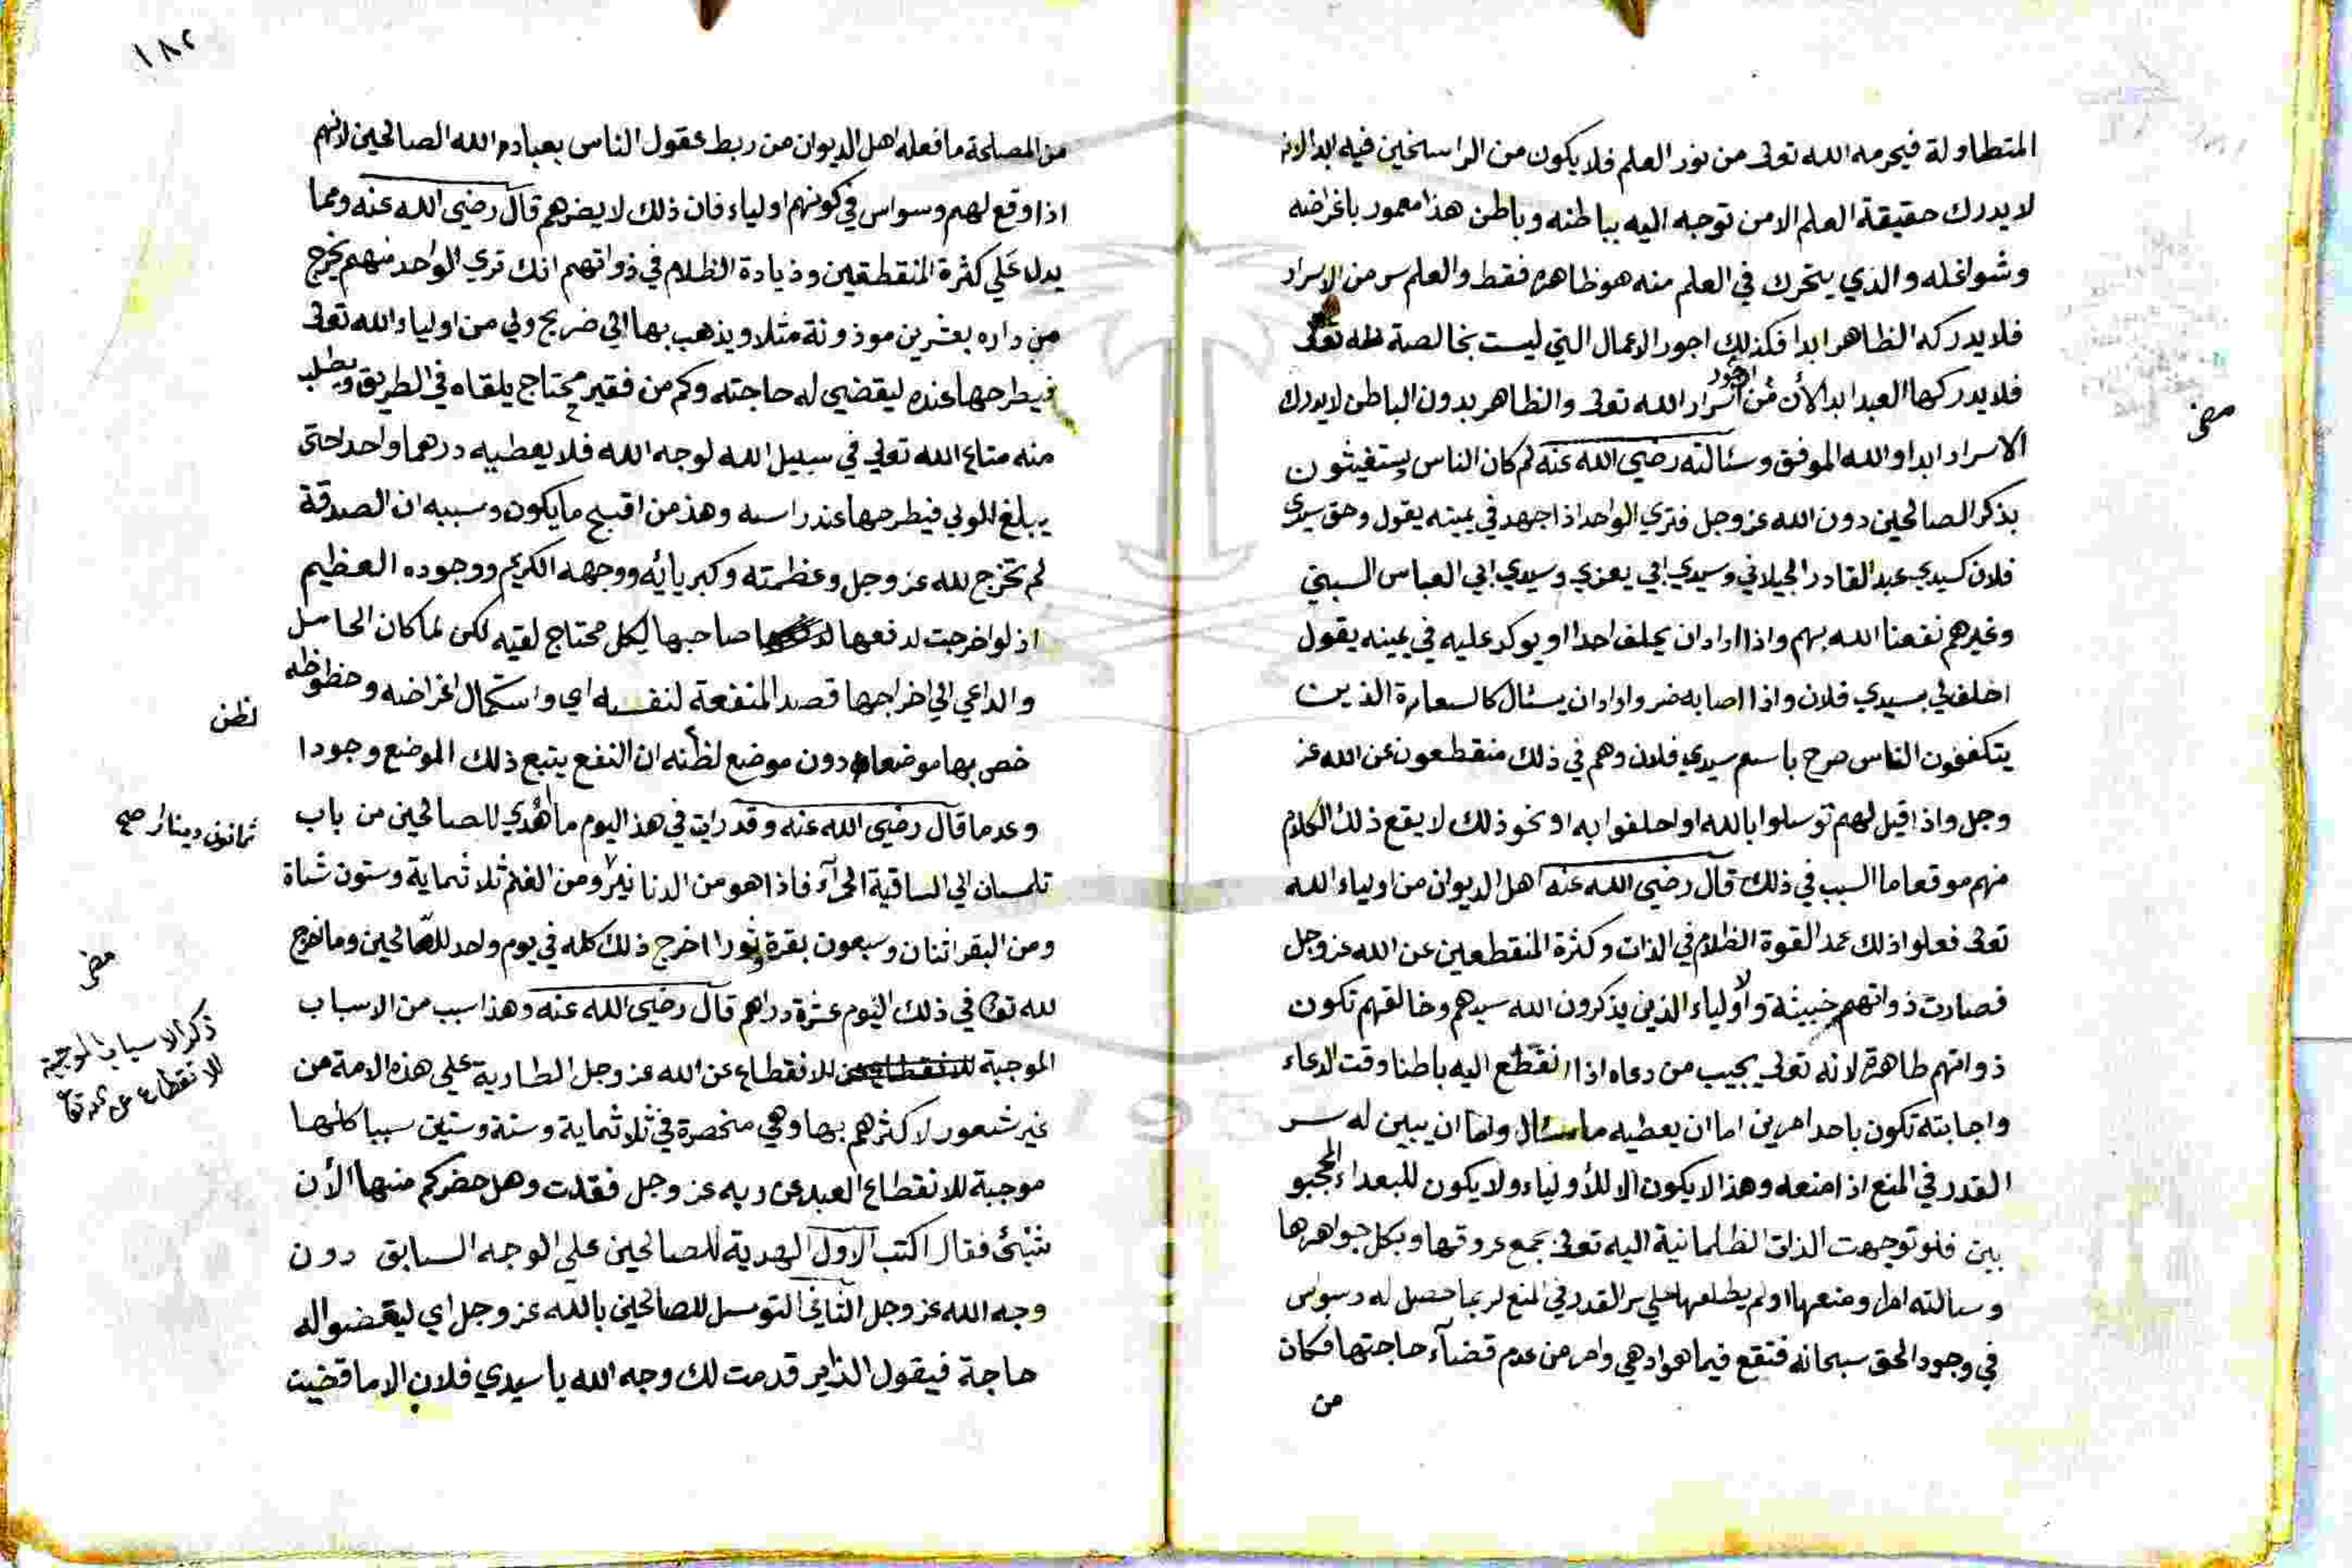 المتطاولة فيحرمه الله تعالى من نور العلم فلا يكون من الراسخين فيه ابدا لانه
لا يدرك حقيقة العلم الا من توجه اليه بباطنه وباطن هذا معمور باغراضه
وشواغله والذي يتحرك في العلم منه هو ظاهره فقط والعلم سر من الاسرار
فلا يدركه الظاهر ابدا فكذلك اجور الاعمال التي ليست بخالصة لله تعالى
فلا يدركها العبد ابدا لأن الاجور من اسرار الله تعالى والظاهر بدون الباطن لا يدرك
الاسرار ابدا والله الموفق وسئالته رضي الله عنه لم كان الناس يستغيثون
بذكر الصالحين دون الله عز وجل فتري الواحد اذا اجهد في يمينه يقول وحق سيدي
فلان كسيدي عبد القادر الجيلاني وسيدي ابي يعزي وسيدي ابي العباس السبتي
وغيرهم نفعنا الله بهم واذا اراد ان يحلف احدا او يوكد عليه في يمينه يقول
احلف لي بسيدي فلان واذا اصابه ضر واراد ان يسئال كالسعاة الذين
يتكففون الناس صرح باسم سيدي فلان وهم في ذلك منقطعون عن الله عز
وجل واذا قيل لهم توسلوا بالله او احلفوا به او نحو ذلك لا يقع ذلك الكلام
منهم موقعا ما السبب في ذلك قال رضي الله عنه اهل الديوان من اولياء الله
تعالى فعلوا ذلك عمدا لقوة الظلام في الذات وكثرة المنقطعين عن الله عز وجل
فصارت ذواتهم خبيثة والأولياء الذين يذكرون الله سيدهم وخالقهم تكون
ذواتهم طاهرة لانه تعالى يجيب من دعاه اذا انقطع اليه باطنا وقت الدعاء
واجابته تكون باحد امرين اما ان يعطيه ما سئال واما ان يبين له سر
القدر في المنع اذا منعه وهذا لا يكون الا للأولياء ولا يكون للبعداء المحجبو
بين فلو توجهت الذات الظلمانية اليه تعالى بجميع عروقها وبكل جواهرها
وسالته امرا ومنعها ولم يطلعها على سر القدر في المنع لربما حصل له وسواس
في وجود الحق سبحانه فتقع فيما هو ادهي وامر من عدم قضآء حاجتها فكان
من
مضى
١٨٢
من المصلحة ما فعله اهل الديوان من ربط عقول الناس بعباد الله الصالحين لانهم
اذا وقع لهم وسواس في كونهم اولياء فان ذلك لا يضرهم قال رضي الله عنه ومما
يدل علي كثرة المنقطعين وزيادة الظلام في ذواتهم انك تري الواحد منهم يخرج
من داره بعشرين موزونة مثلا ويذهب بها الي ضريح ولي من اولياء الله تعالى
فيطرحها عنده ليقضي له حاجته وكم من فقير محتاج يلقاه في الطريق ويطلب
منه متاع الله تعالي في سبيل الله لوجه الله فلا يعطيه درهما واحدا حتى
يبلغ المولي فيطرحها عند راسه وهذ من اقبح ما يكون وسببه ان الصدقة
لم تخرج لله عز وجل وعظمته وكبريائه ووجهه الكريم ووجوده العظيم
اذ لو اخرجت لدفعها صاحبها لكل محتاج لقيه لكن لما كان الحامل
والداعي الي اخراجها قصد المنفعة لنفسه اي واستكمال اغراضه وحظوظه
خص بها موضعا دون موضع لظنه ان النفع يتبع ذلك الموضع وجودا
وعدما قال رضي الله عنه وقد رايت في هذا اليوم ما أهدي للصالحين من باب
تلمسان الي الساقية الحمرآء فاذا هو من الدنانير ومن الغنم ثلاثماية وستون شاة
ومن البقر اثنان وسبعون بقرة وثورا اخرج ذلك كله في يوم واحد للصالحين وما خرج
لله تعالى في ذلك اليوم عشرة دراهم قال رضي الله عنه وهذا سبب من الاسباب
الموجبة للانقطاع عن الله عز وجل الطارية علي هذه الامة من
غير شعور لاكثرهم بها وهي منحصرة في ثلاثماية وستة وستين سببا كلها
موجبة للانقطاع العبد عن ربه عز وجل فقلت وهل حضركم منها الأن
شيئ فقال اكتب الاول الهدية للصالحين علي الوجه السابق دون
وجه الله عز وجل الثاني التوسل للصالحين بالله عز وجل اي ليقضوا له
حاجة فيقول الزاير قدمت لك وجه الله يا سيدي فلان الا ما قضيت
لظن
ثمانون دينار صح
مضى
ذكر الاسباب الموجبة
للانقطاع عن الله تعالى